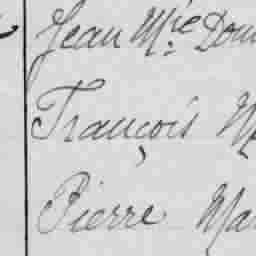 Jean Mie Dom
François M
Pierre Ma